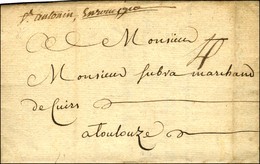 St. antonin,
Monsieur
Monsieur Subra marchand
de Cuirs
a toulouze